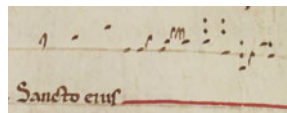 Sancto eius